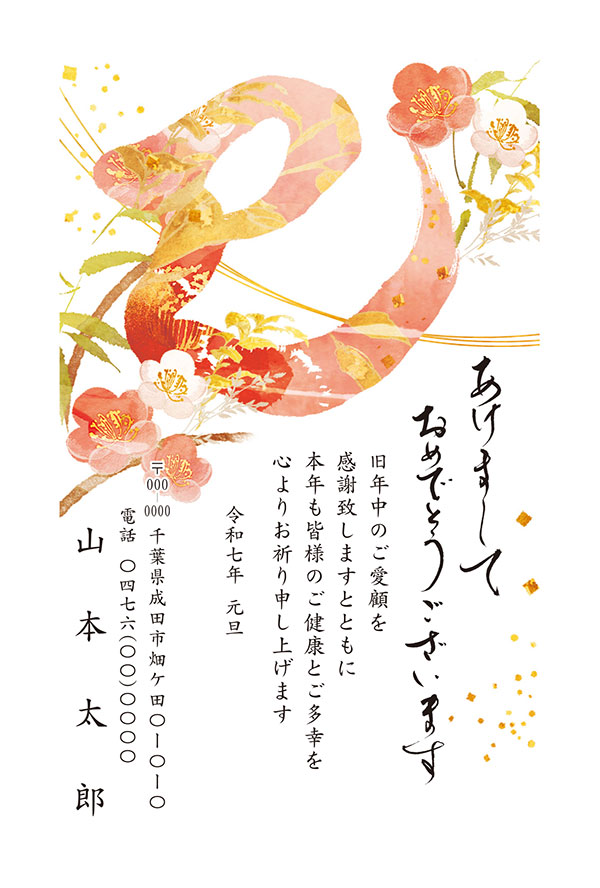 あけまして
おめでとうございます
旧年中のご愛顧を
感謝致しますとともに
本年も皆様のご健康とご多幸を
心よりお祈り申し上げます
令和七年 元旦
〒000-0000
千葉県成田市畑ケ田〇ー〇ー〇
電話 〇四七六(〇〇)〇〇〇〇
山本太郎